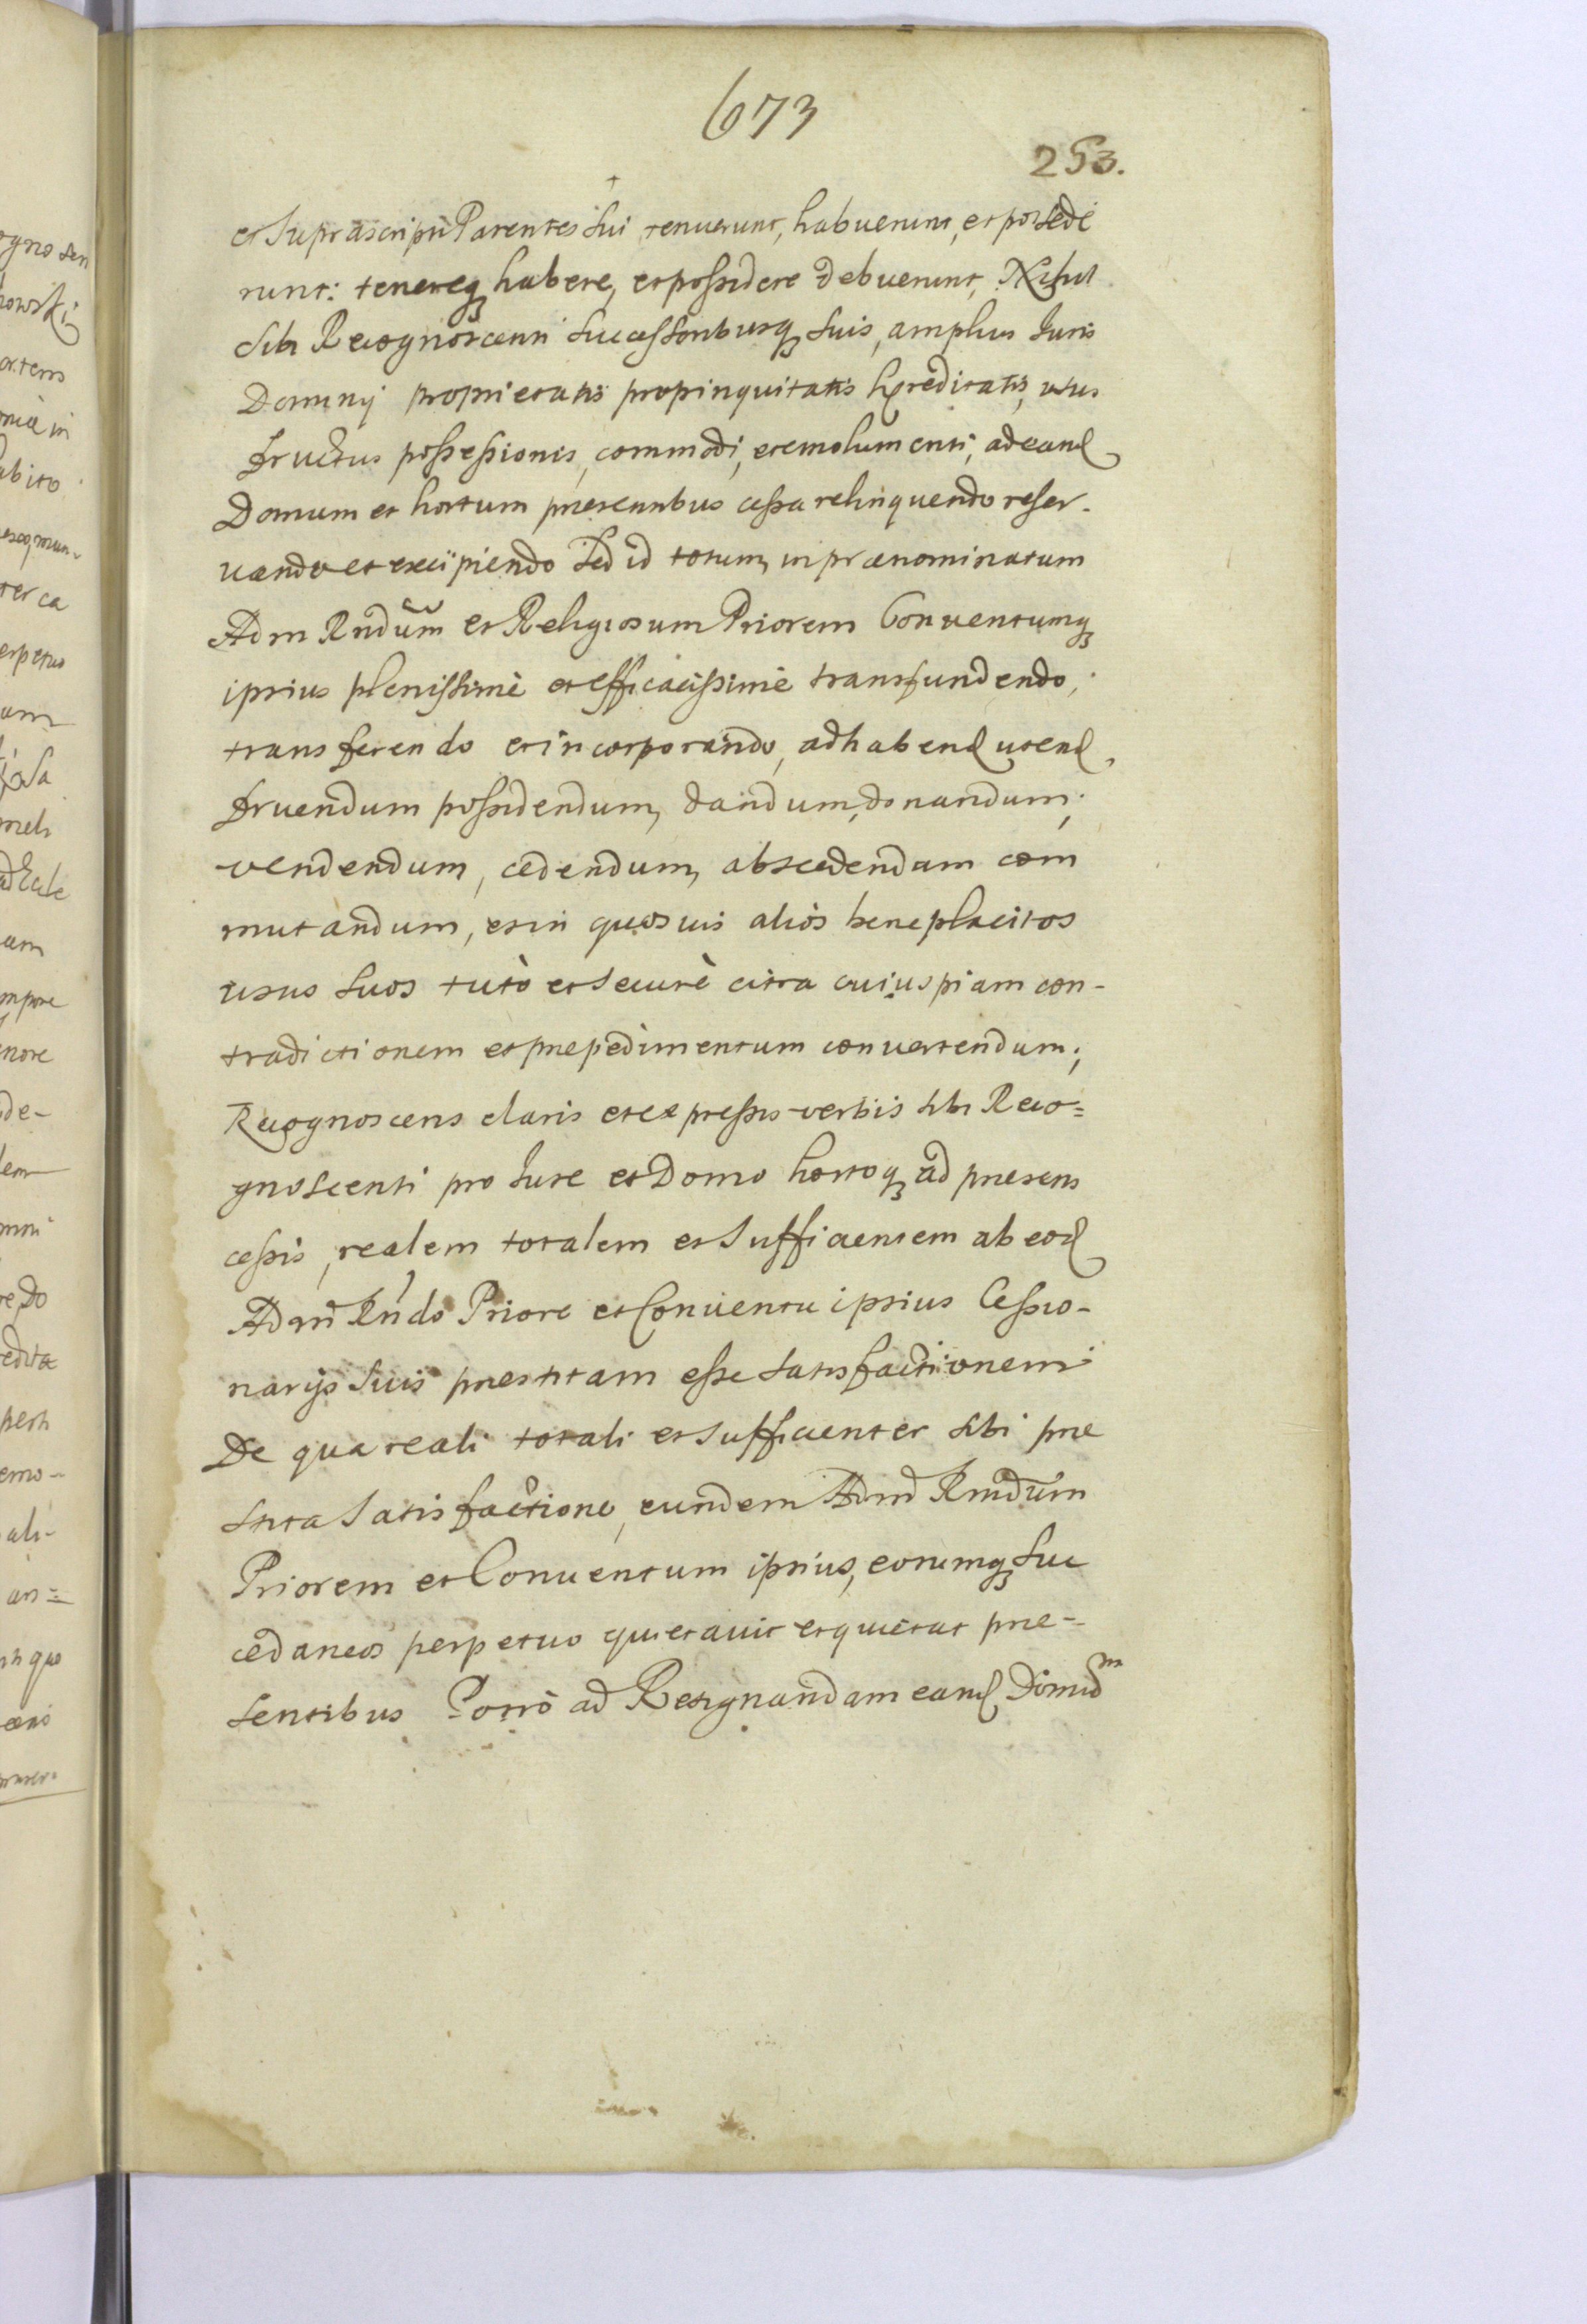 673
253.
et Supráscripti Parentes sui tenuerunt, habuerunt, et possede
runt: tenereq habere, et possidere debuerunt, Nihil
sibi Recognoscenti successoribusq suis, amplius Iuris
Dominij proprietatis propinquitatis hæreditatis, usus
fructus possessionis, commodi, et emolumenti, ad eand
Domum et hortum præsentibus cessa relinquendo reser-
uando et excipiendo sed id totum in prænominatum
Adm Rndum et Religiosum Priorem Conuentumq
ipsius plenissimè et efficacissimè transfundendo,
transferendo et incorporando, ad habend utend,
fruendum possidendum, dandum, donandum,
vendendum, cedendum, abscedendam com
mutandum, et in quosuis aliòs beneplacitos
usus suos tutò et securè citra cuiuspiam con-
tradictionem et præpedimentum conuertendum;
Recognoscens claris et expressis verbis sibi Reco=
gnoscenti pro Iure et Domo hortoq ad præsens
cessis, realem totalem et Sufficientem ab eod
Adm Rndo Priore et Conuentu ipsius Cessio-
narijs suis præstitam esse satisfactionem
De qua reali totali et sufficienter sibi præ
stita Satisfactione, eundem Admd Rmdum
Priorem et Conuentum ipsius, eorumq suc
cedaneos perpetuo quietauit et quietat præ-
sentibus Porrò ad Resignandam eand Domu